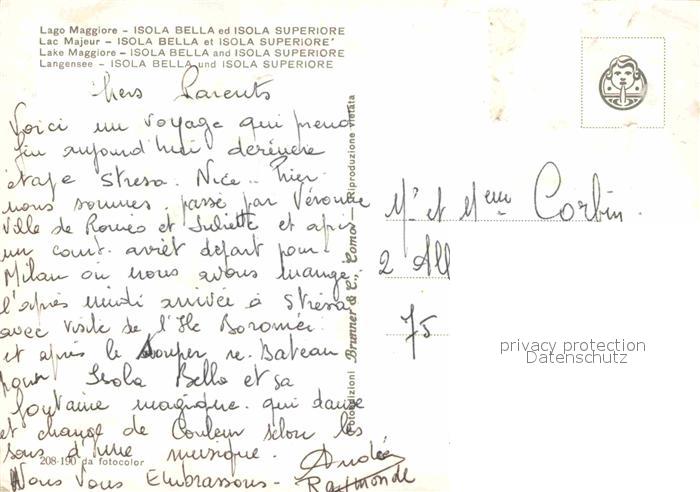 Lago Maggiore - ISOLA BELLA ed ISOLA SUPERIORE
Lac Majeur - ISOLA BELLA et ISOLA SUPERIORE
Lake Maggiore - ISOLA BELLA and ISOLA SUPERIORE
Langensee - ISOLA BELLA und ISOLA SUPERIORE
Chers Parents
Voici un voyage qui prend
fin aujourd'hui derènere
étape Stresa. Nice.. Hier
nous sommes. passé par Véronne
ville de Roméo et Juliette et après
un court. arrêt départ pour
Milan où nous avons mangé
l'après midi arrivée à Strésa
avec visite de l'Ile Boromée.
et après le souper re. Bateau
pour Isola Bella et sa
fontaine magique. qui danse
et change de Couleur selon les
sons d'une musique.
Nous Vous Embrassons -
Andrée
Raymonde
208-190 da fotocolor
Fotoedizioni Brunner & C., Como - Riproduzione vietata
Mr et Mme Corbin.
2 All
75
privacy protection
Datenschutz